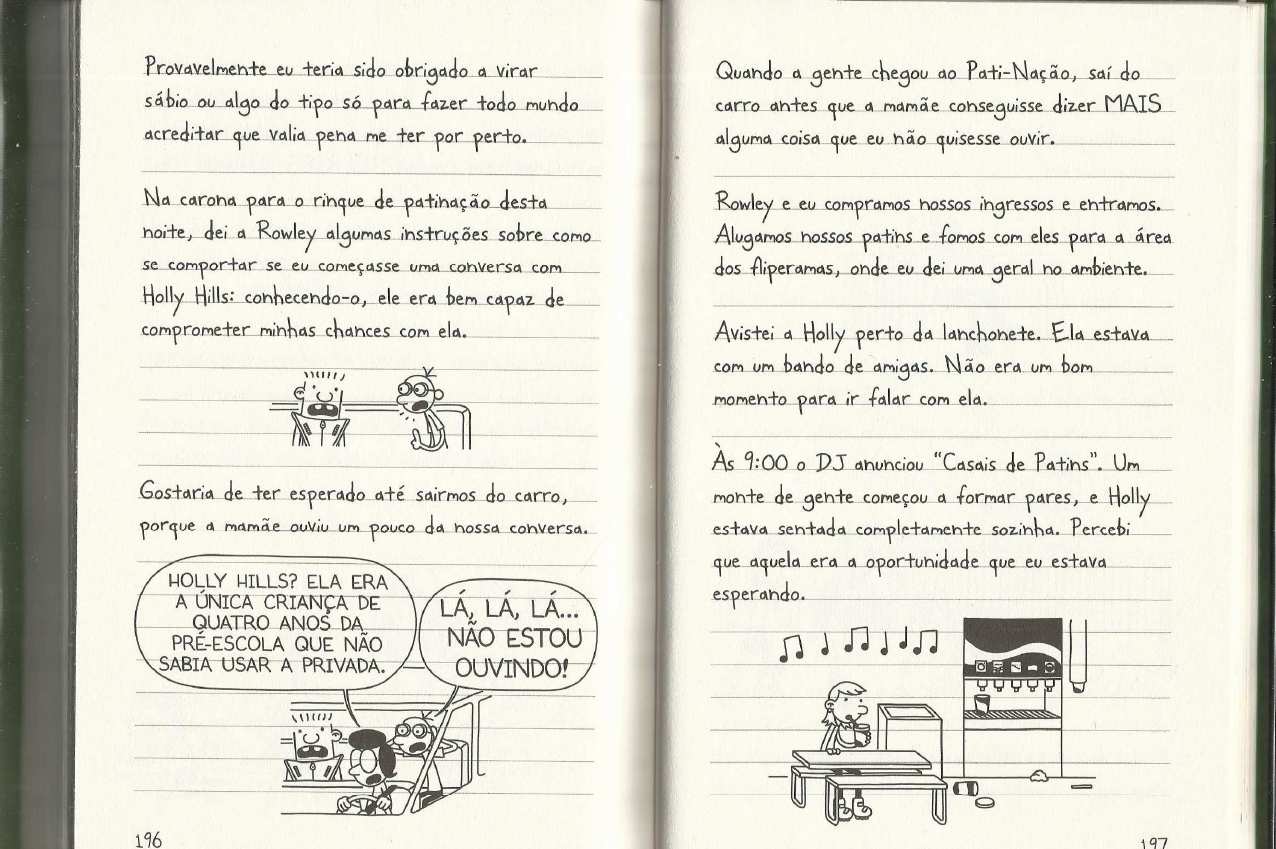 Provavelmente eu teria sido obrigado a virar
sábio ou algo do tipo só para fazer todo mundo
acreditar que valia pena me ter por perto.
Na carona para o rinque de patinação desta
noite, dei a Rowley algumas instruções sobre como
se comportar se eu começasse uma conversa com
Holly Hills: conhecendo-o, ele era bem capaz de
comprometer minhas chances com ela.
Gostaria de ter esperado até sairmos do carro,
porque a mamãe ouviu um pouco da nossa conversa.
HOLLY HILLS? ELA ERA
A ÚNICA CRIANÇA DE
QUATRO ANOS DA
PRÉ-ESCOLA QUE NÃO
SABIA USAR A PRIVADA.
LÁ, LÁ, LÁ...
NÃO ESTOU
OUVINDO!
196
Quando a gente chegou ao Pati-Nação, saí do
carro antes que a mamãe conseguisse dizer MAIS
alguma coisa que eu não quisesse ouvir.
Rowley e eu compramos nossos ingressos e entramos.
Alugamos nossos patins e fomos com eles para a área
dos fliperamas, onde eu dei uma geral no ambiente.
Avistei a Holly perto da lanchonete. Ela estava
com um bando de amigas. Não era um bom
momento para ir falar com ela.
Às 9:00 o DJ anunciou "Casais de Patins". Um
monte de gente começou a formar pares, e Holly
estava sentada completamente sozinha. Percebi
que aquela era a oportunidade que eu estava
esperando.
197